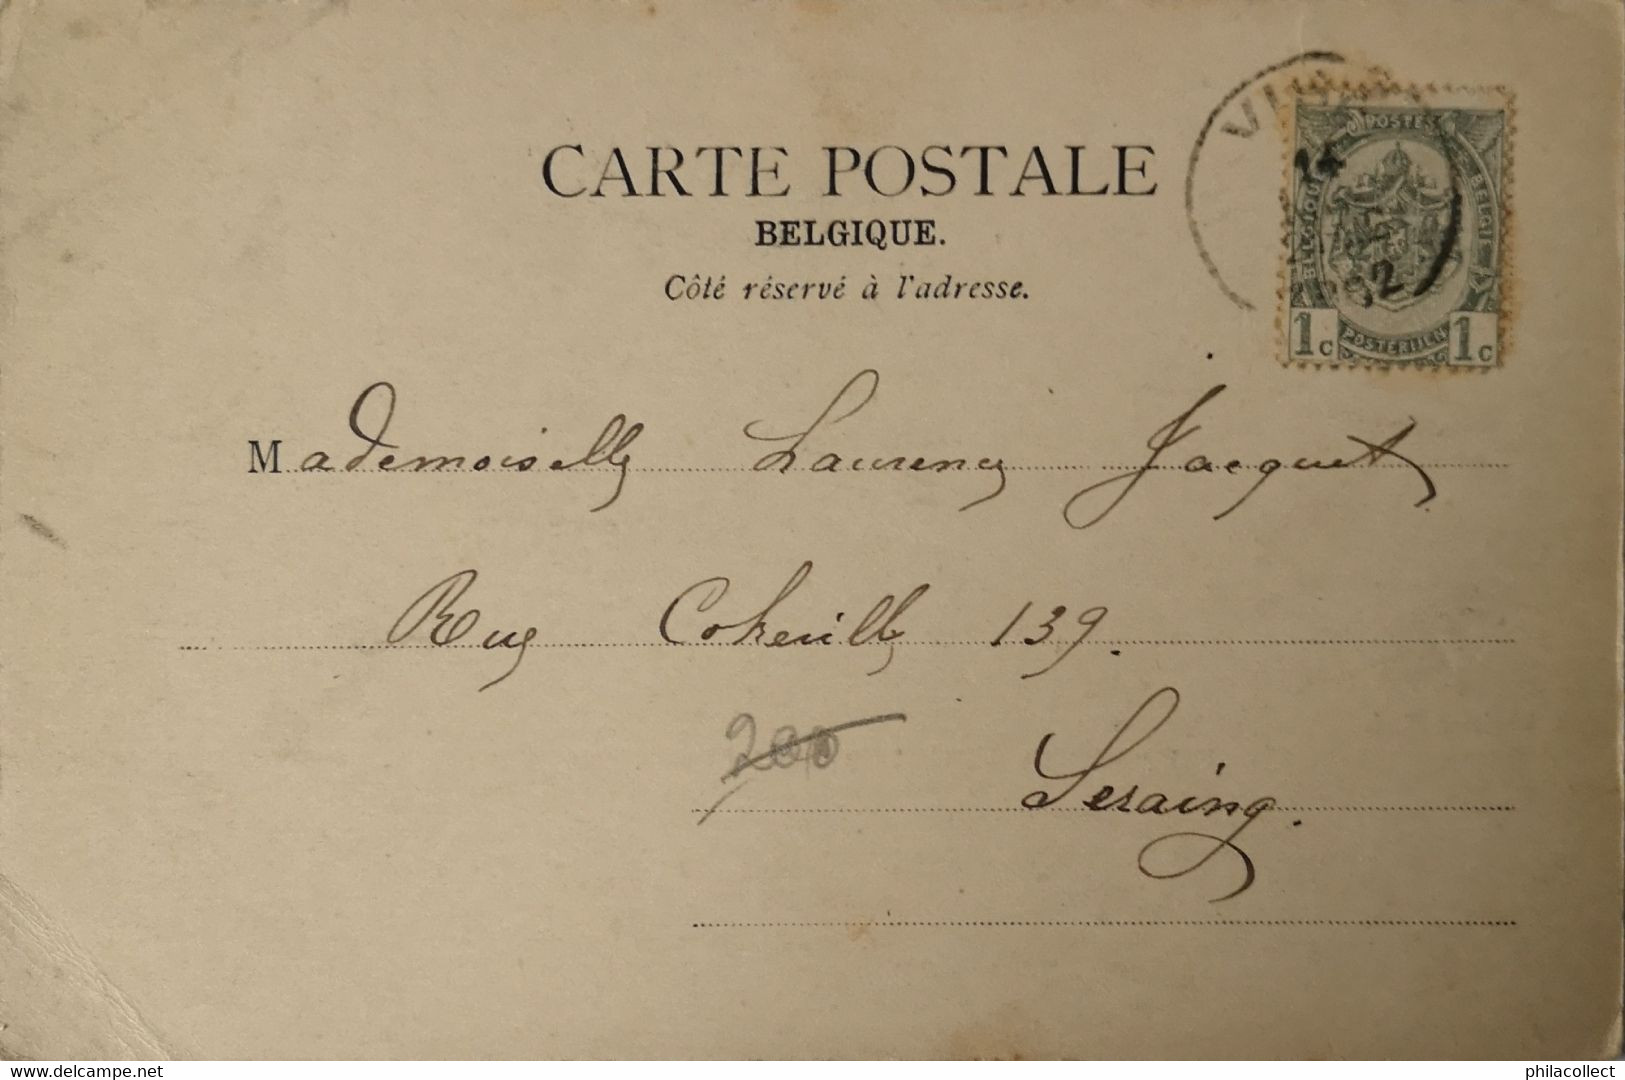 CARTE POSTALE
BELGIQUE.
Côté réservé à l'adresse.
POSTES
BELGIQUE
BELGIE
14
1c POSTERIJEN 1c
Mademoiselle Laurence Jacquet
Rue Cokerille 139.
200
Seraing.
delcampe.net
philacollect